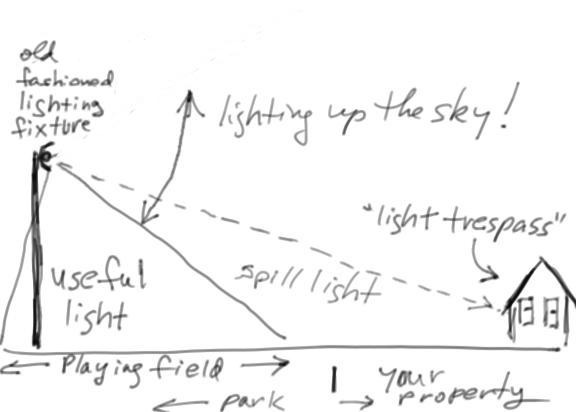 old
fashioned
lighting
fixture
lighting up the sky!
"light trespass"
useful
light
spill light
Playing field
park
your
property